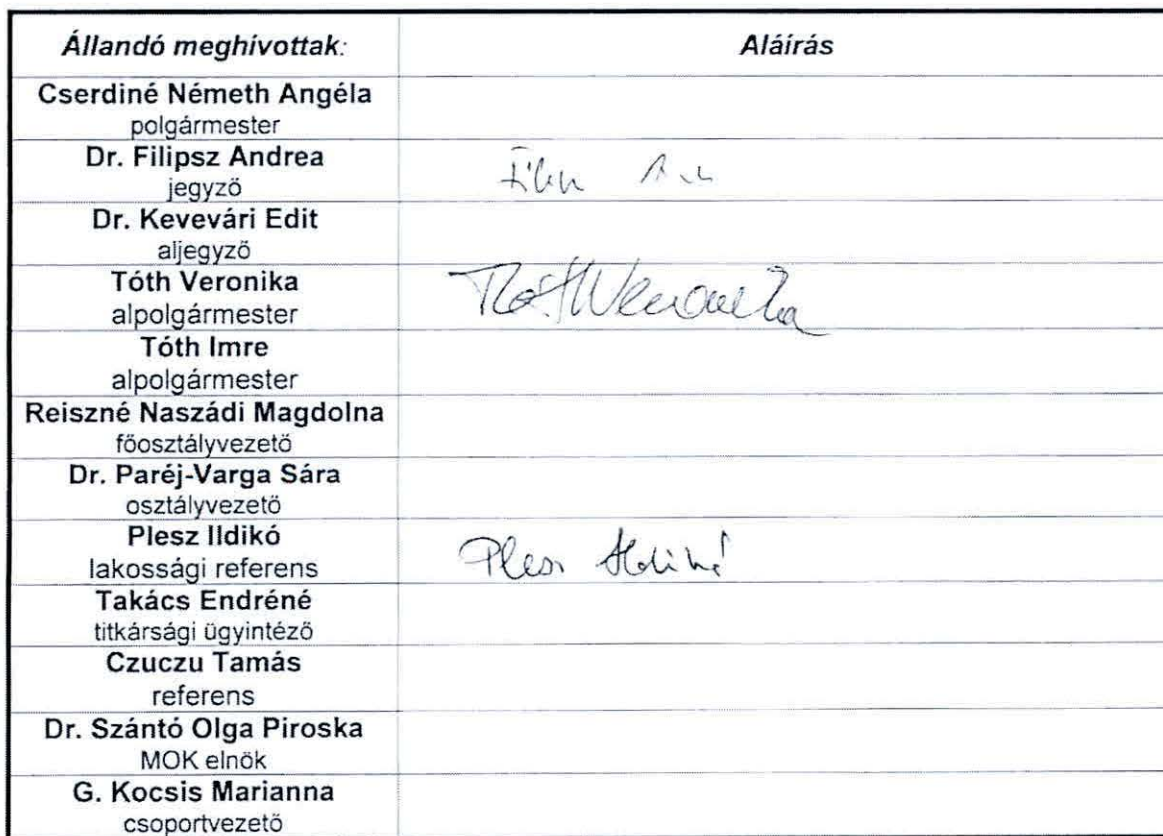 Állandó meghívottak: Aláírás
Cserdiné Németh Angéla
polgármester
Dr. Filipsz Andrea
jegyző
Dr. Kevevári Edit
aljegyző
Tóth Veronika
alpolgármester
Tóth Veronika
Tóth Imre
alpolgármester
Reiszné Naszádi Magdolna
főosztályvezető
Dr. Paréj-Varga Sára
osztályvezető
Plesz Ildikó
lakossági referens
Plesz Ildikó
Takács Endréné
titkársági ügyintéző
Czuczu Tamás
referens
Dr. Szántó Olga Piroska
MOK elnök
G. Kocsis Marianna
csoportvezető